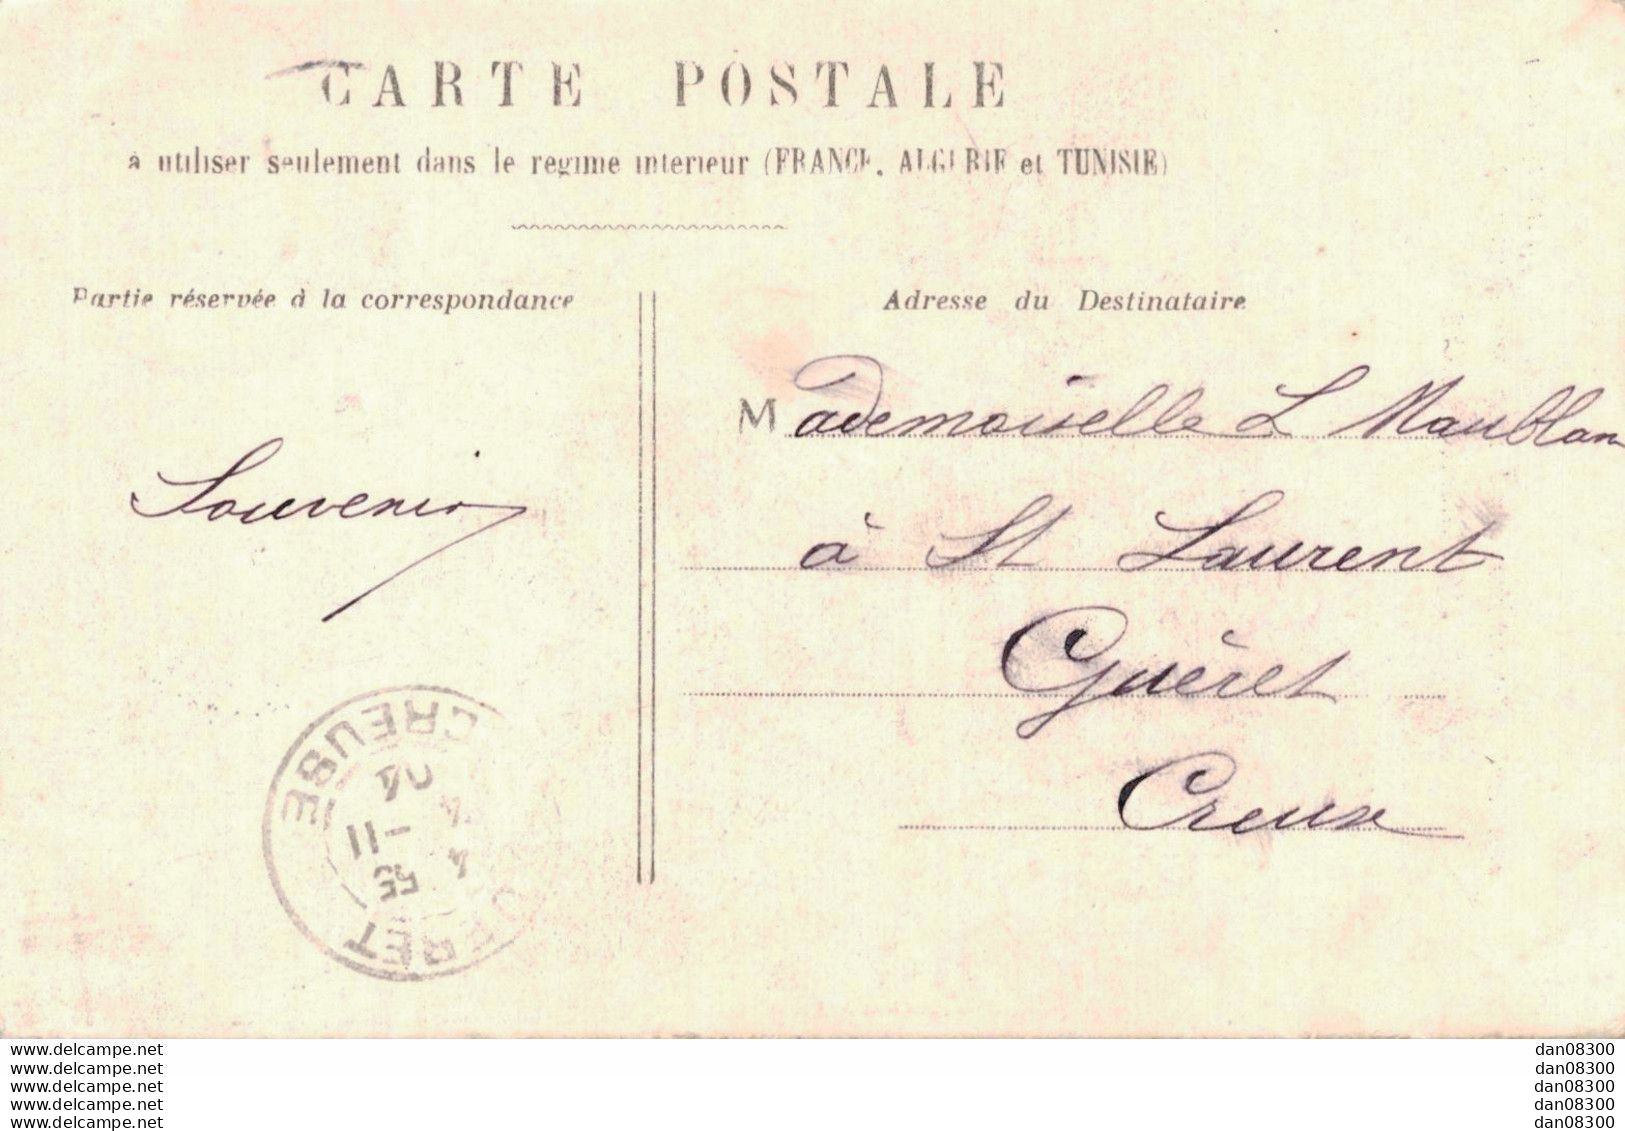 CARTE POSTALE
à utiliser seulement dans le régime intérieur (FRANCE, ALGERIE et TUNISIE)
Partie réservée à la correspondance
Adresse du Destinataire
Mademoiselle L Maublan
à St Laurent
Guéret
Creuse
Souvenir
CREUSE
04
4
11
4
55
GUERET
www.delcampe.net
www.delcampe.net
www.delcampe.net
www.delcampe.net
www.delcampe.net
dan08300
dan08300
dan08300
dan08300
dan08300